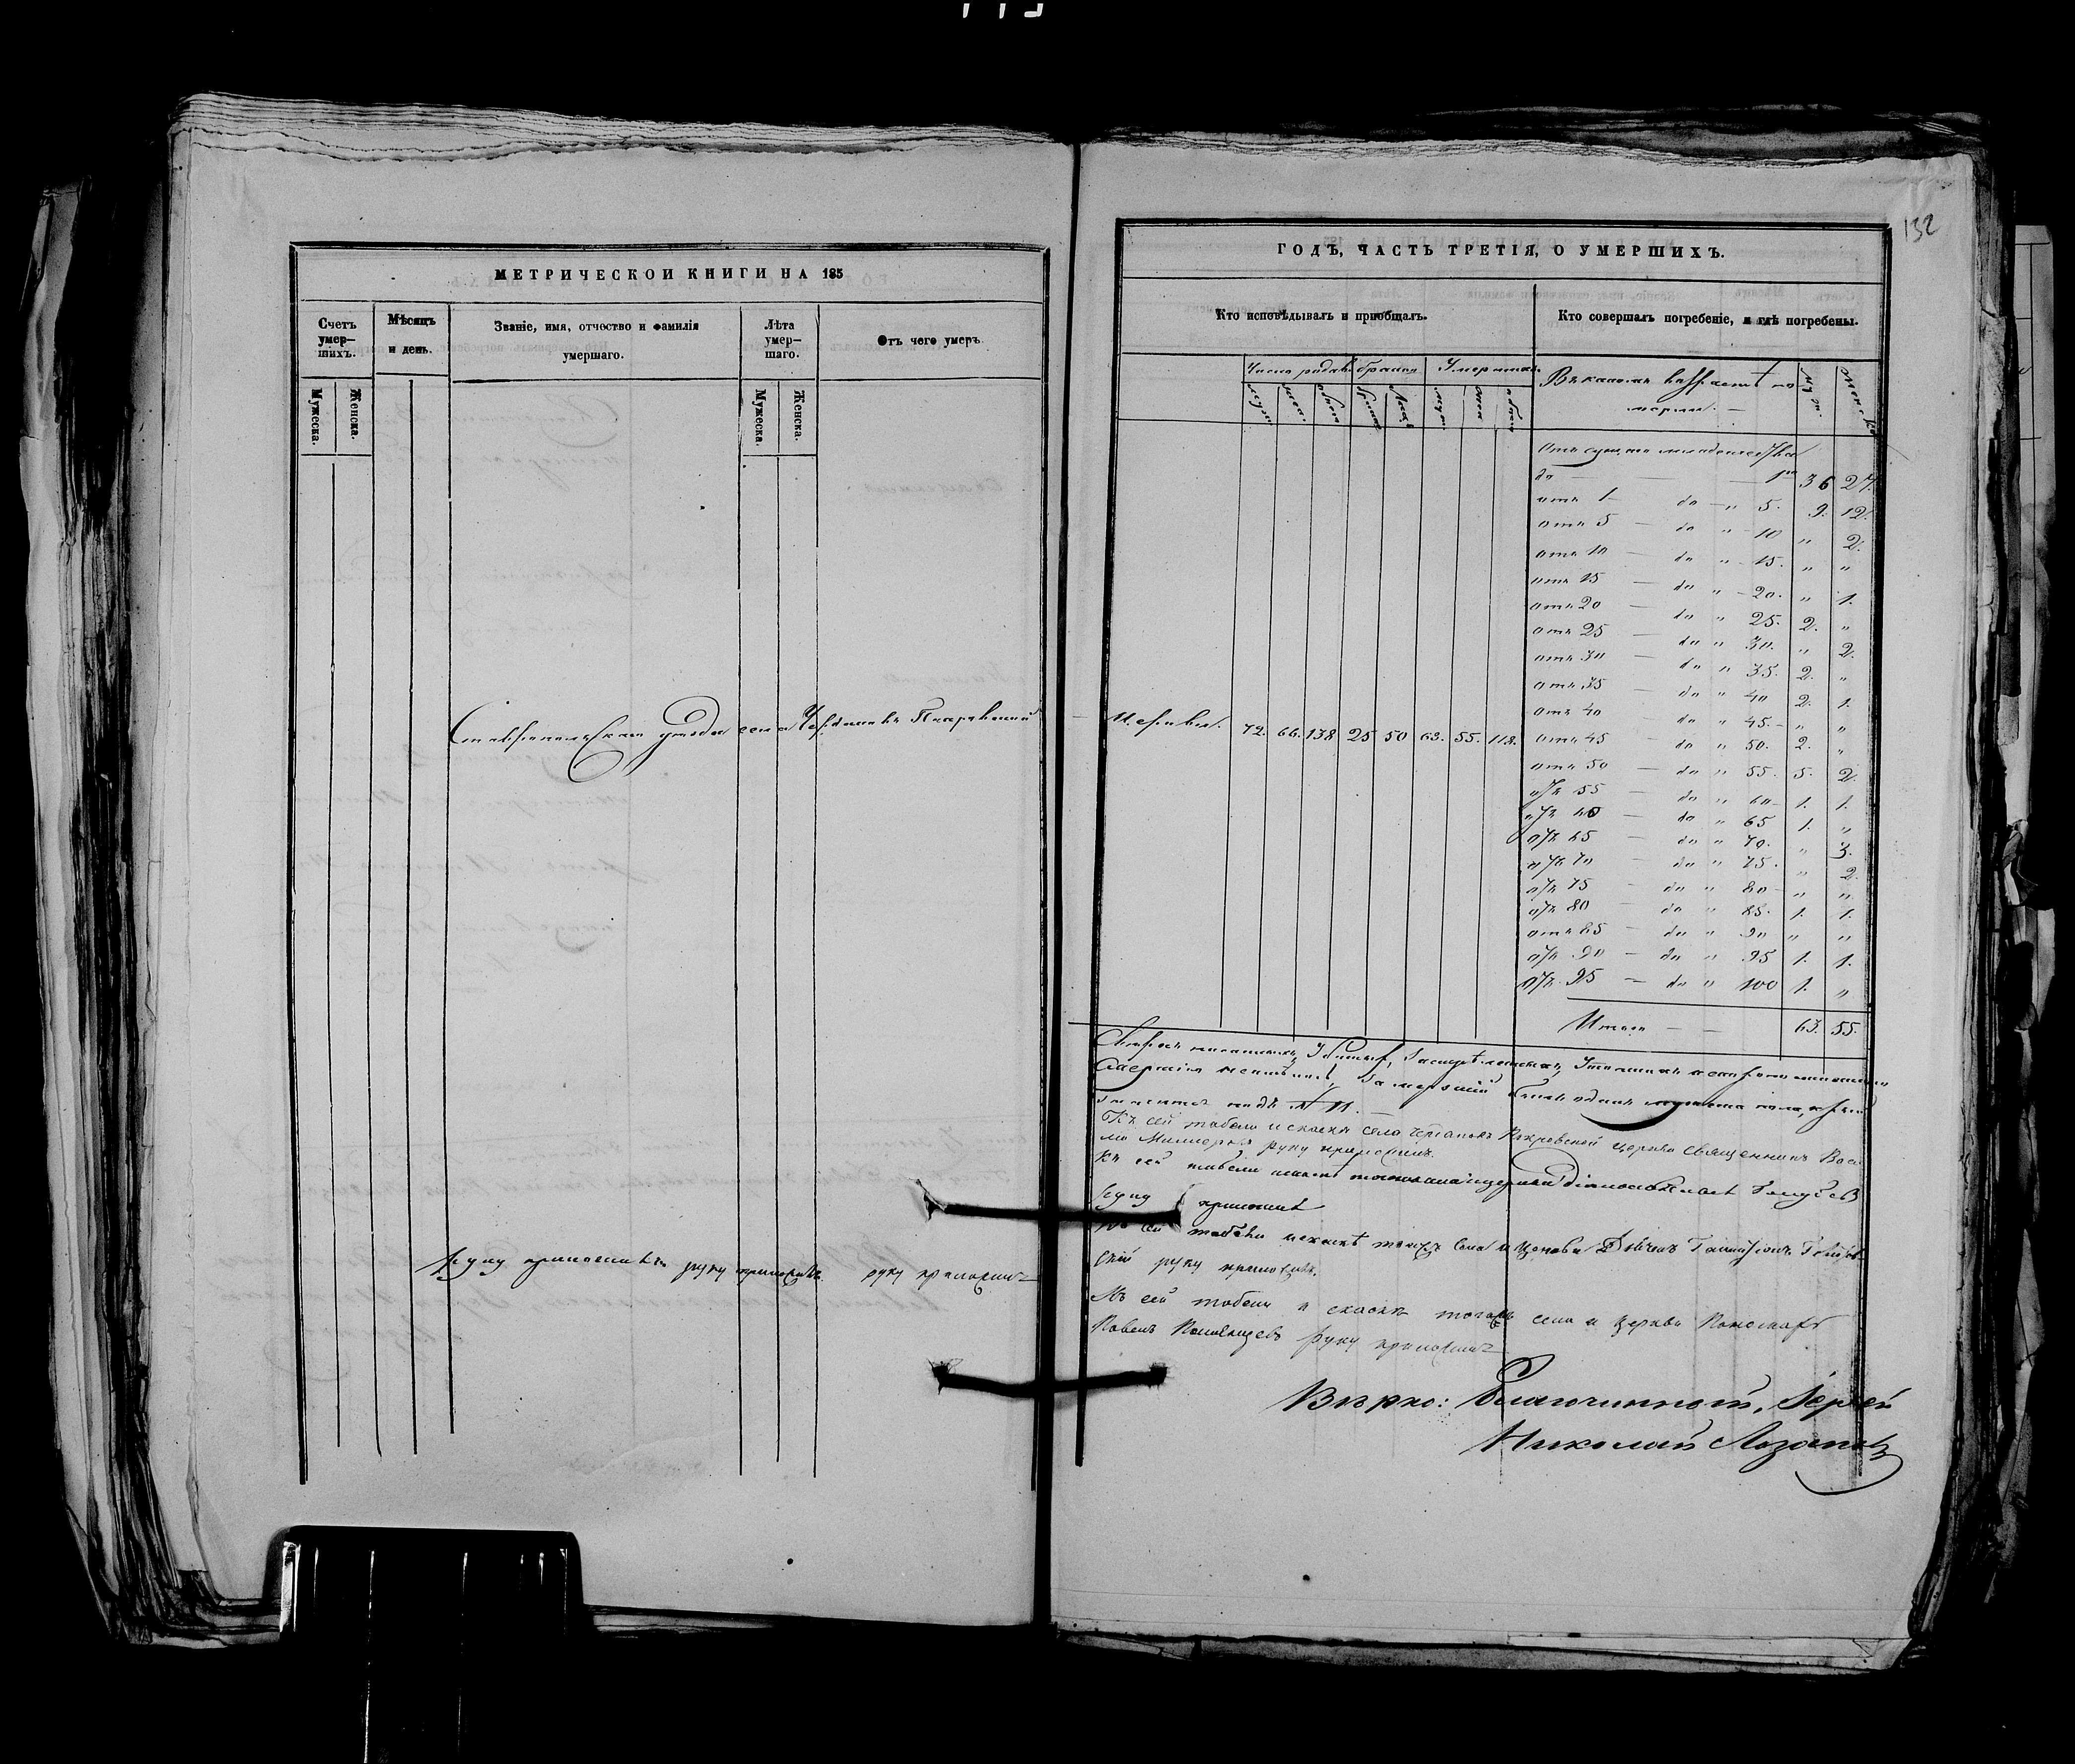 132
МЕТРИЧЕСКОЙ КНИГИ НА 185
Счетъ умер-шихъ.
Мѣсяцъ и день.
Званіе, имя, отчество и фамилія умершаго.
Лѣта умер-шаго.
Отъ чего умеръ.
Мужеска.
Женска.
Мужеска.
Женска.
Ставропольскаго уѣзда села Чердаковъ Покровской
руку приложилъ руку приложилъ руку приложилъ
ГОДЪ, ЧАСТЬ ТРЕТІЯ, О УМЕРШИХЪ.
Кто исповѣдывалъ и пріобщалъ.
Кто совершалъ погребеніе, и гдѣ погребены.
Число родив. браков Умершихъ
Въ какомъ возрастѣ по-
мерли.
муж.
Женска
муж. жен. обоего браков лицъ муж. жен. обоего
Церкви. 72. 66. 138 25 50 63. 55. 118.
до — — 1го 36 27.
отъ 1 — до — „ 5. 9. 12.
отъ 5 — до „ — 10 „ 2.
отъ 10 — до „ — 15. „ „
отъ 15 — до „ — 20. „ 1.
отъ 20 — до „ 25. 2. „
отъ 25 — до „ 30. „ 2.
отъ 30 — до „ 35. 2. „
отъ 35 — до „ 40 2. 1.
отъ 40 — до „ 45. „ „
отъ 45 — до „ 50. 2. „
отъ 50 — до „ 55. 5. 2.
отъ 55 — до „ 60 1. 1.
отъ 60 — до „ 65 1. „
отъ 65 — до „ 70. „ 3.
отъ 70 — до „ 75. „ 2.
отъ 75 — до „ 80 „ „
отъ 80 — до „ 85. 1. 1.
отъ 85 — до „ 90 „ „
отъ 90 — до „ 95 1. 1.
отъ 95 — до „ 100 1. „
Итого — — 63. 55.
одинъ мужеска пола,
подъ № 11. —
Къ сей табели и сказкѣ села Чердаковъ Покровской церкви священникъ Васи
руку приложилъ.
Къ сей табели
руку приложилъ
Къ сей табели и сказкѣ тогожъ села и Церкви
руку приложилъ.
Къ сей табели и сказкѣ тогожъ села и церкви Пономарь
Павелъ руку приложилъ
Вѣрно: Благочинной, Іерей
Николай Лозановъ